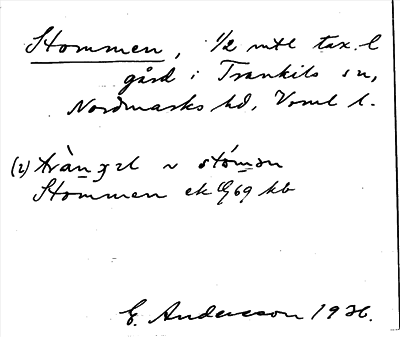 Stommen, 1/2 mtl tax. l
gård i Trankils sn,
Nordmarks hd, Vrml l.
(2) tràn ʒǝl ~ stómǝn
Stommen ek 69 kb
E. Andersson 1926.